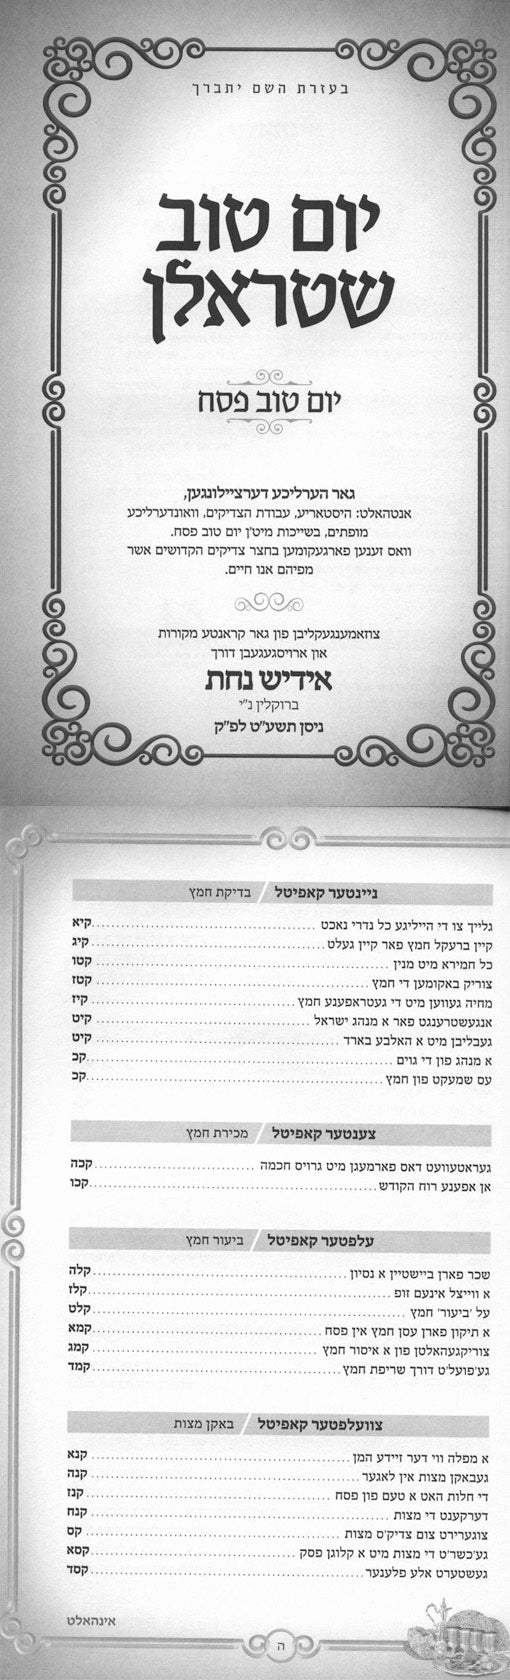 בעזרת השם יתברך
יום טוב
שטראלן
יום טוב פסח
גאר הערליכע דערציילונגען,
אנטהאלט: היסטאריע, עבודת הצדיקים, וואונדערליכע
מופתים, בשייכות מיט'ן יום טוב פסח.
וואס זענען פארגעקומען בחצר צדיקים הקדושים אשר
מפיהם אנו חיים.
צוזאמענגעקליבן פון גאר קראנטע מקורות
און ארויסגעגעבן דורך
אידיש נחת
ברוקלין נ"י
ניסן תשע"ט לפ"ק
ניינטער קאפיטל / בדיקת חמץ
גלייך צו די הייליגע כל נדרי נאכט קיא
קיין ברעקל חמץ פאר קיין געלט קיג
כל חמירא מיט מנין קטו
צוריק באקומען די חמץ קטז
מחיה געווען מיט די געטראפענע חמץ קיז
אנגעשטרענגט פאר א מנהג ישראל קיט
געבליבן מיט א האלבע בארד קיט
א מנהג פון די גוים קכ
עס שמעקט פון חמץ קכ
צענטער קאפיטל / מכירת חמץ
געראטעוועט דאס פארמעגן מיט גרויס חכמה קכה
אן אפענע רוח הקודש קכו
עלפטער קאפיטל / ביעור חמץ
שכר פארן ביישטיין א נסיון קלה
א ווייצל אינעם זופ קלז
על 'ביעור' חמץ קלט
א תיקון פארן עסן חמץ אין פסח קמא
צוריקגעהאלטן פון א איסור חמץ קמג
גע'פועל'ט דורך שריפת חמץ קמד
צוועלפטער קאפיטל / באקן מצות
א מפלה ווי דער זיידע המן קנא
געבאקן מצות אין לאגער קנה
די חלות האט א טעם פון פסח קנז
דערקענט די מצות קנח
צוגערירט צום צדיק'ס מצות קס
גע'כשר'ט די מצות מיט א קלוגן פסק קסא
געשטערט אלע פלענער קסד
אינהאלט
ה